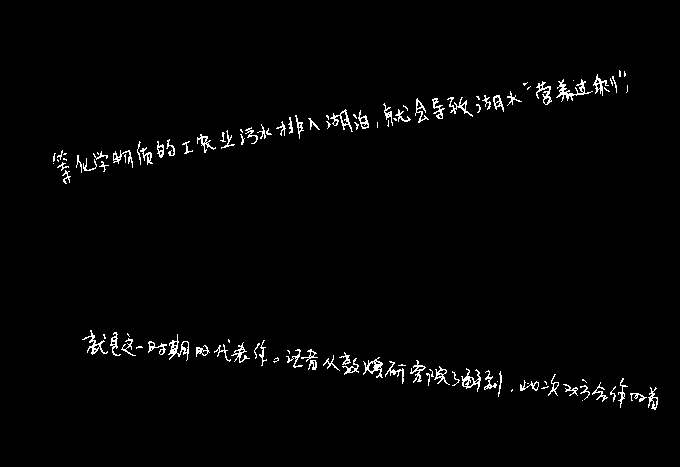 等化学物质的工农业污水排入湖泊,就会导致湖水“营养过剩”,
就是这一时期的代表作。记者从敦煌研究院了解到,此次双方合作的首